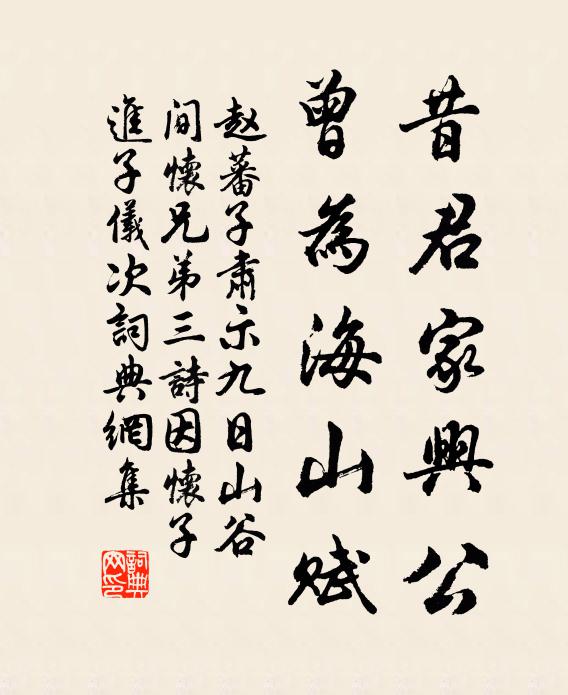 昔君家興公
曾為海山賦
赵蕃子肅示九日山谷
间懷兄弟三詩因懷子
進子儀次詞典網集
詞典
网印